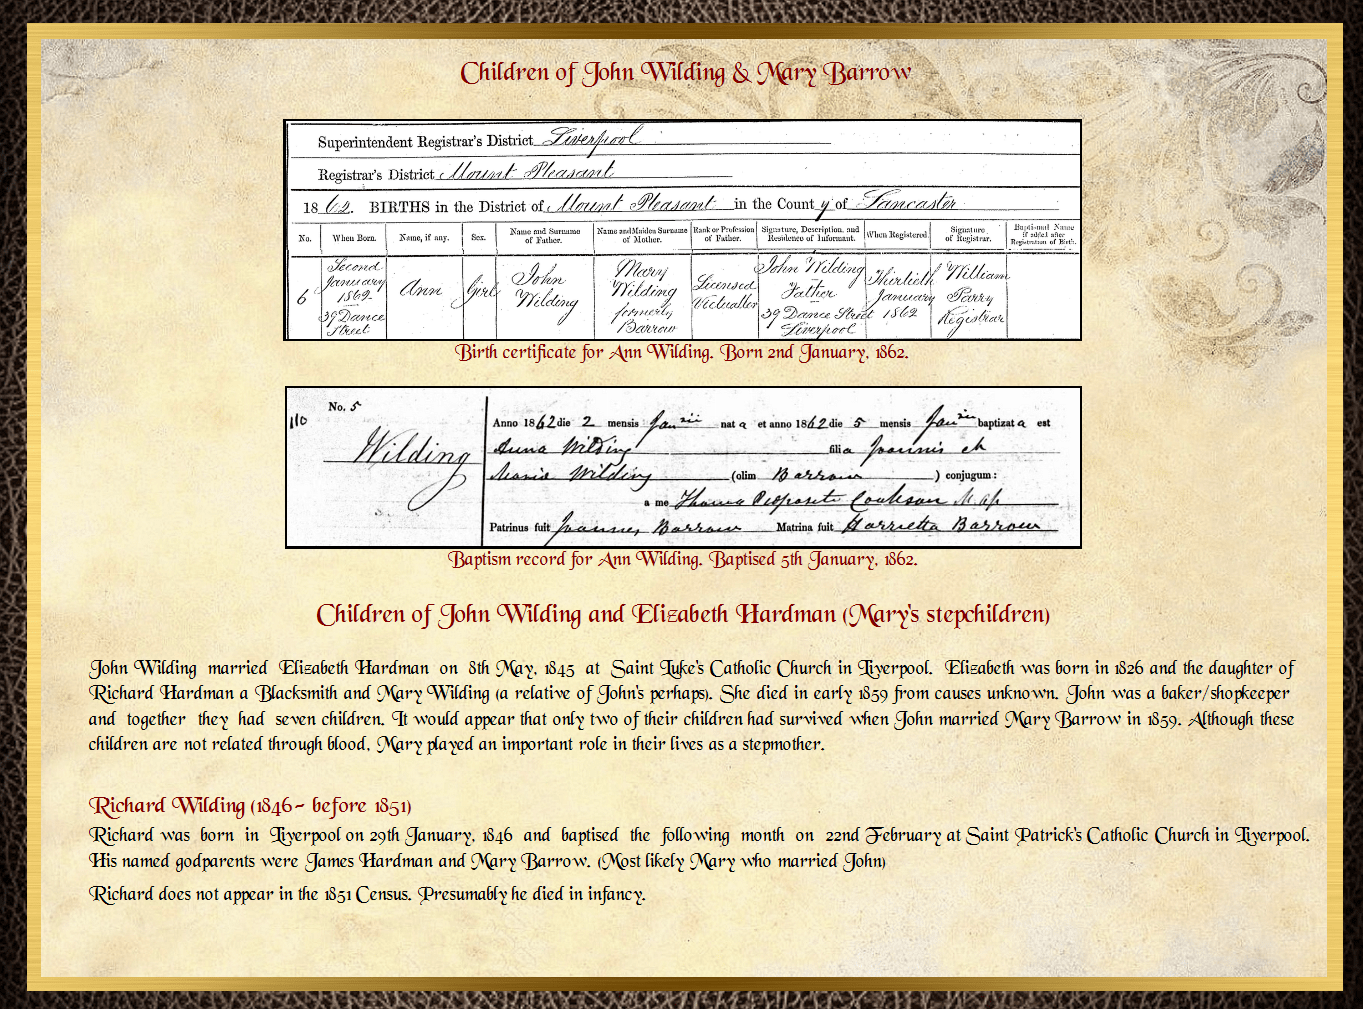 Children of John Wilding & Mary Barrow
Superintendent Registrar's District Liverpool
Registrar's District Mount Pleasant
1862. BIRTHS in the District of Mount Pleasant in the County of Lancaster
No. When Born. Name, if any. Sex. Name and Surname of Father. Name and Maiden Surname of Mother. Rank or Profession of Father. Signature, Description, and Residence of Informant. When Registered. Signature of Registrar. Baptismal Name if added after Registration of Birth.
6 Second January 1862 39 Dance Street Ann Girl John Wilding Mary Wilding formerly Barrow Licensed Victualler John Wilding Father 39 Dance Street Liverpool Thirtieth January 1862 William Parry Registrar
Birth certificate for Ann Wilding. Born 2nd January, 1862.
110 No. 5
Wilding
Anno 1862 die 2 mensis Janrii nata et anno 1862 die 5 mensis Janrii baptizata est
Anna Wilding filia Joannis et
Maria Wilding (olim Barrow) conjugum:
a me Thoma Cookson
Patrinus fuit Joannes Barrow Matrina fuit Harrietta Barrow
Baptism record for Ann Wilding. Baptised 5th January, 1862.
Children of John Wilding and Elizabeth Hardman (Mary's stepchildren)
John Wilding married Elizabeth Hardman on 8th May, 1845 at Saint Luke's Catholic Church in Liverpool. Elizabeth was born in 1826 and the daughter of
Richard Hardman a Blacksmith and Mary Wilding (a relative of John's perhaps). She died in early 1859 from causes unknown. John was a baker/shopkeeper
and together they had seven children. It would appear that only two of their children had survived when John married Mary Barrow in 1859. Although these
children are not related through blood, Mary played an important role in their lives as a stepmother.
Richard Wilding (1846- before 1851)
Richard was born in Liverpool on 29th January, 1846 and baptised the following month on 22nd February at Saint Patrick's Catholic Church in Liverpool.
His named godparents were James Hardman and Mary Barrow. (Most likely Mary who married John)
Richard does not appear in the 1851 Census. Presumably he died in infancy.